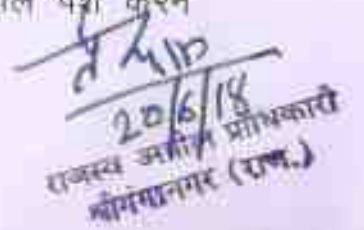 पेश करने
20/6/18
राजस्व अपील प्राधिकारी
श्रीगंगानगर (राज.)